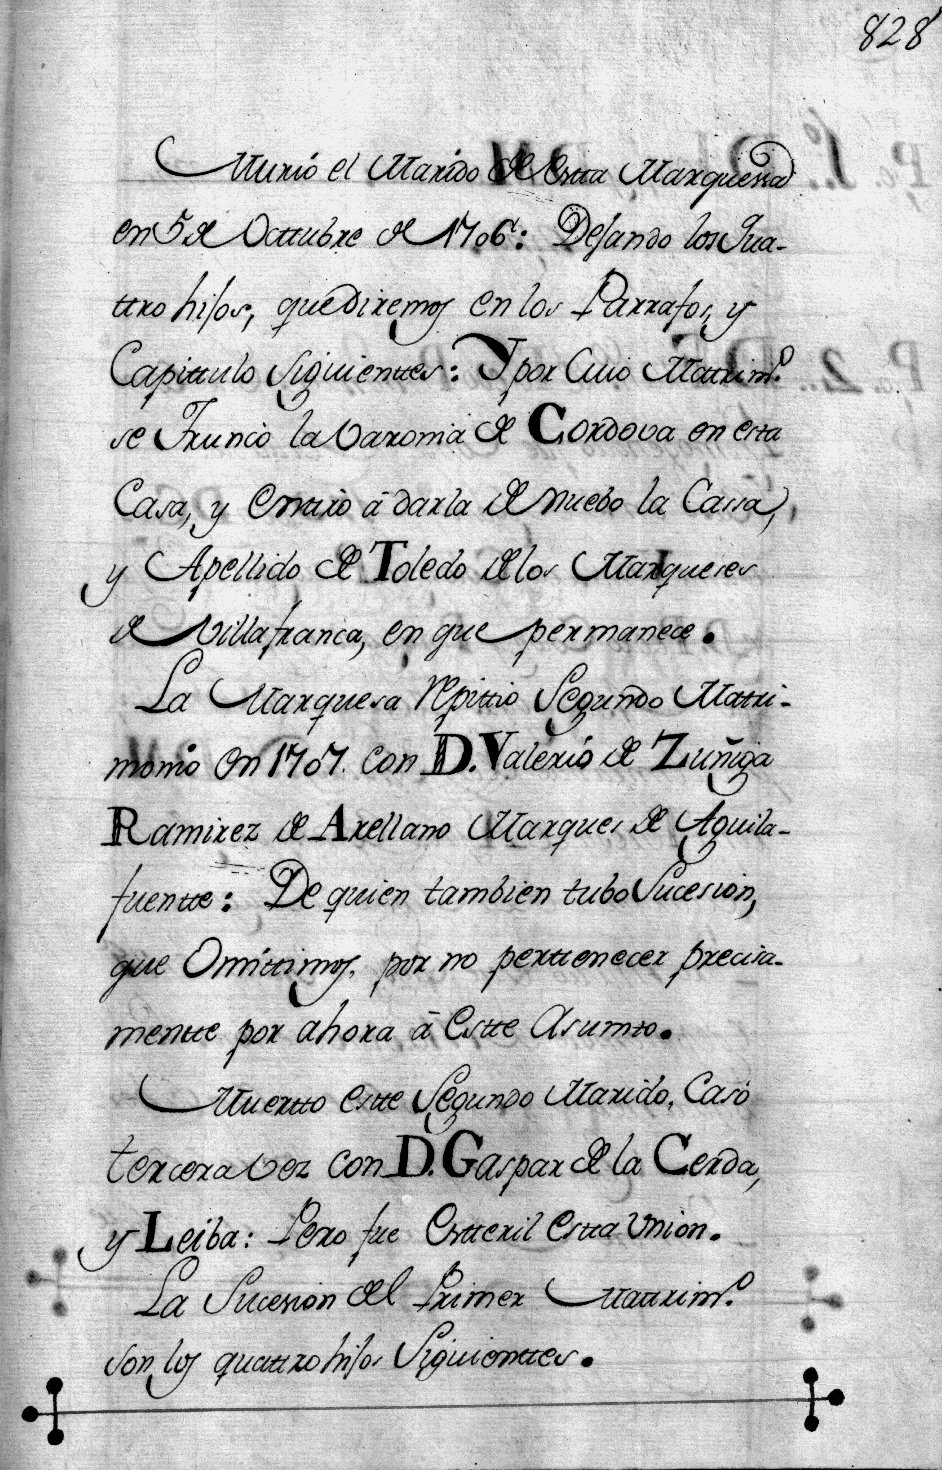 828
Murió el Marido de Estta Marquessa
en 5 de Octtubre de 1706: Dejando los Qua-
ttro hijos, que diremos en los Parrafos, y
Capittulo Siguienttes: Y por Cuio Matrim.º
se Truncó la Varonia de Cordova en esta
Casa, y Entró á darla de nuebo la Cassa,
y Apellido de Toledo de los Marqueses
de Villafranca, en que permanece.
La Marquesa repittió Segundo Matri-
monio En 1707. con D. Valerio de Zuñiga
Ramirez de Arellano Marques de Aguila-
fuentte: De quien tambien tubo Sucesion,
que Omittimos, por no perttenecer precisa-
mentte por ahora á Estte Asumto.
Muertto Estte Segundo Marido, Casó
tercera Vez con D. Gaspar de la Cerda,
y Leiba: Pero fue Estteril Estta Union.
La Sucesion del Primer Mattrim.º
son los quattro hijos Siguienttes.